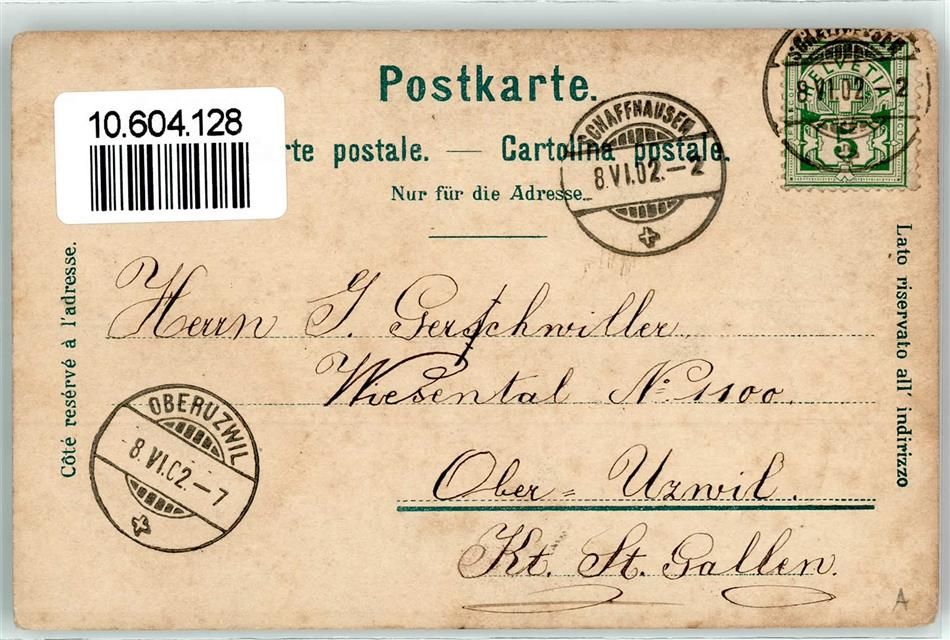 Postkarte.
10.604.128
rte postale. — Cartolina postale.
Nur für die Adresse.
SCHAFFHAUSEN
8.VI.02.–2
HELVETIA
8.VI.02. 2
5
FRANCO
Côté reservé à l'adresse.
Lato riservato all' indirizzo
Herrn J. Gerschwiller
Wiesental No. 1100.
Ober=Uzwil.
Kt. St. Gallen.
OBERUZWIL
8.VI.02.–7
A